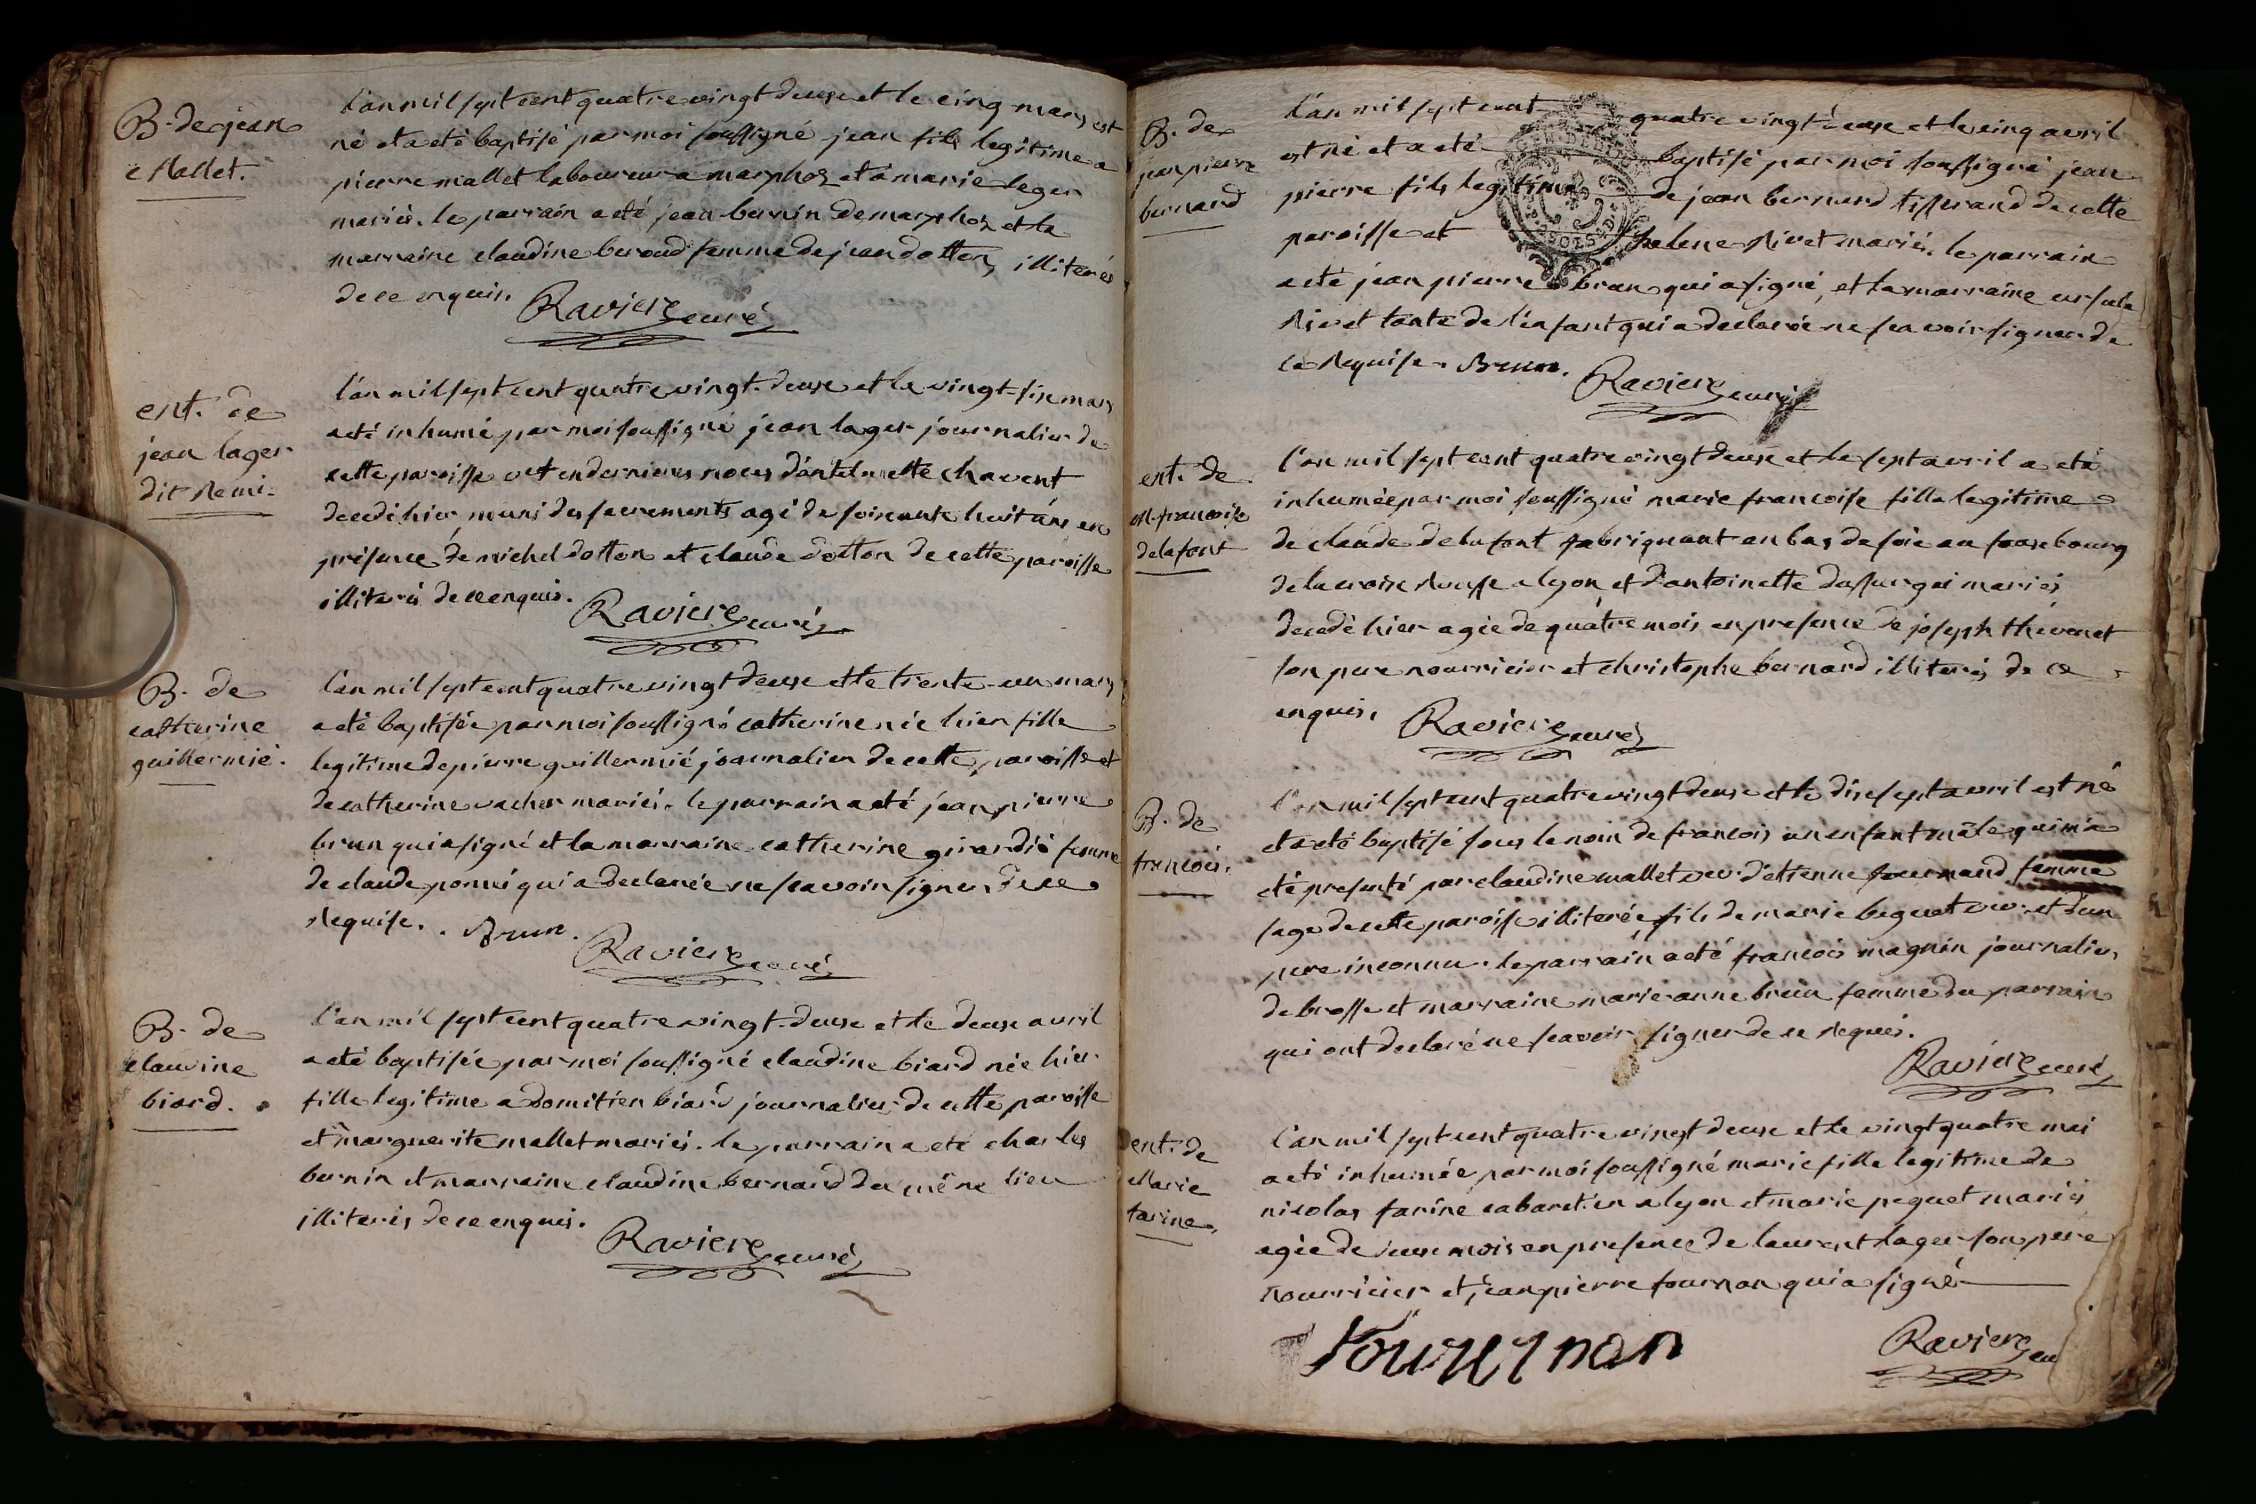 B. de jean
Mallet.
l'an mil sept cent quatre vingt deuse et le cinq mars est
né et a eté baptisé par moi soussigné jean fils legitime a
pierre mallet laboureur a marphoz et a marie leger
mariés. le parrain a eté jean bernin de marphoz et la
marraine claudine beroud femme de jean dotton illiterés
de ce enquis.
Raviere curé
ent. de
jean lager
dit Remi.
l'an mil sept cent quatre vingt. deuse et le vingt-sixe mars
a eté inhumé par moi soussigné jean lager journalier de
cette paroisse veuf en dernieres noces d'antelmette chavent
decedé hier muni des sacrements agé de soixante huit ans en
présence de michel dotton et claude dotton de cette paroisse
illiterés de ce enquis.
Raviere curé
B. de
catherine
guillermié.
l'an mil sept cent quatre vingt deuse et le trente-un mars
a eté baptisée par moi soussigné catherine née hier fille
legitime de pierre guillermié journalier de cette paroisse et
de catherine vacher mariés. le parrain a eté jean pierre
brun qui a signé et la marraine catherine girardié femme
de claude ponné qui a declarée ne scavoir signer de ce
Requise. . Brun.
Raviere curé
B. de
claudine
biard.
l'an mil sept cent quatre vingt. deuse et le deuse avril
a eté baptisée par moi soussigné claudine biard née hier
fille legitime a domitien biard journalier de cette paroisse
et marguerite mallet mariés. le parrain a eté charles
bernin et marraine claudine bernard du même lieu
illiterés de ce enquis.
Raviere curé
B. de
jean pierre
bernard
l'an mil sept cent quatre vingt deuse et le cinq avril
est né et a eté baptisé par moi soussigné jean
pierre fils legitime de jean bernard tisserand de cette
paroisse et helene Rivet mariés. le parrain
a eté jean pierre brun qui a signé, et la marraine ursule
Rivet tante de l'enfant qui a declarée ne scavoir signer de
ce Requise. Brun.
Raviere curé
ent. de
M. francoise
delafont
l'an mil sept cent quatre vingt deuse et le sept avril a eté
inhumée par moi soussigné marie francoise fille legitime
de claude delafont fabriquant en bas de soie au fauxebourg
de la croixe Rousse a lyon et d'antoinette dassurgei mariés
decedé hier agée de quatre mois en presence de joseph thévenet
son pere nourricier et christophe bernard illiterés de ce
enquis.
Raviere curé
B. de
francois.
l'an mil sept cent quatre vingt deuse et le dixe sept avril est né
et a eté baptisé sous le nom de francois un enfant mâle qui m'a
eté presenté par claudine mallet vev. d'etienne fournand femme
sage de cette paroisse illiterée, fils de marie beguet vev. et d'un
pere inconnu. le parrain a eté francois magnin journalier
de brosse et marraine marie-anne brun femme du parrain
qui ont declaré ne scavoir signer de ce Requis.
Raviere curé
ent. de
Marie
farine.
l'an mil sept cent quatre vingt deuse et le vingt quatre mai
a eté inhumée par moi soussigné marie fille legitime de
nicolas farine cabaretier a lyon et marie peguet mariés
agée de deuse mois en presence de laurent lager son pere
nourricier et jean pierre fournan qui a signé
fournan
Raviere cu